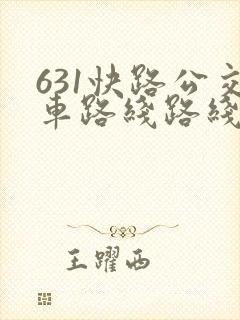 631快路公交
車路綫路綫
王躍西